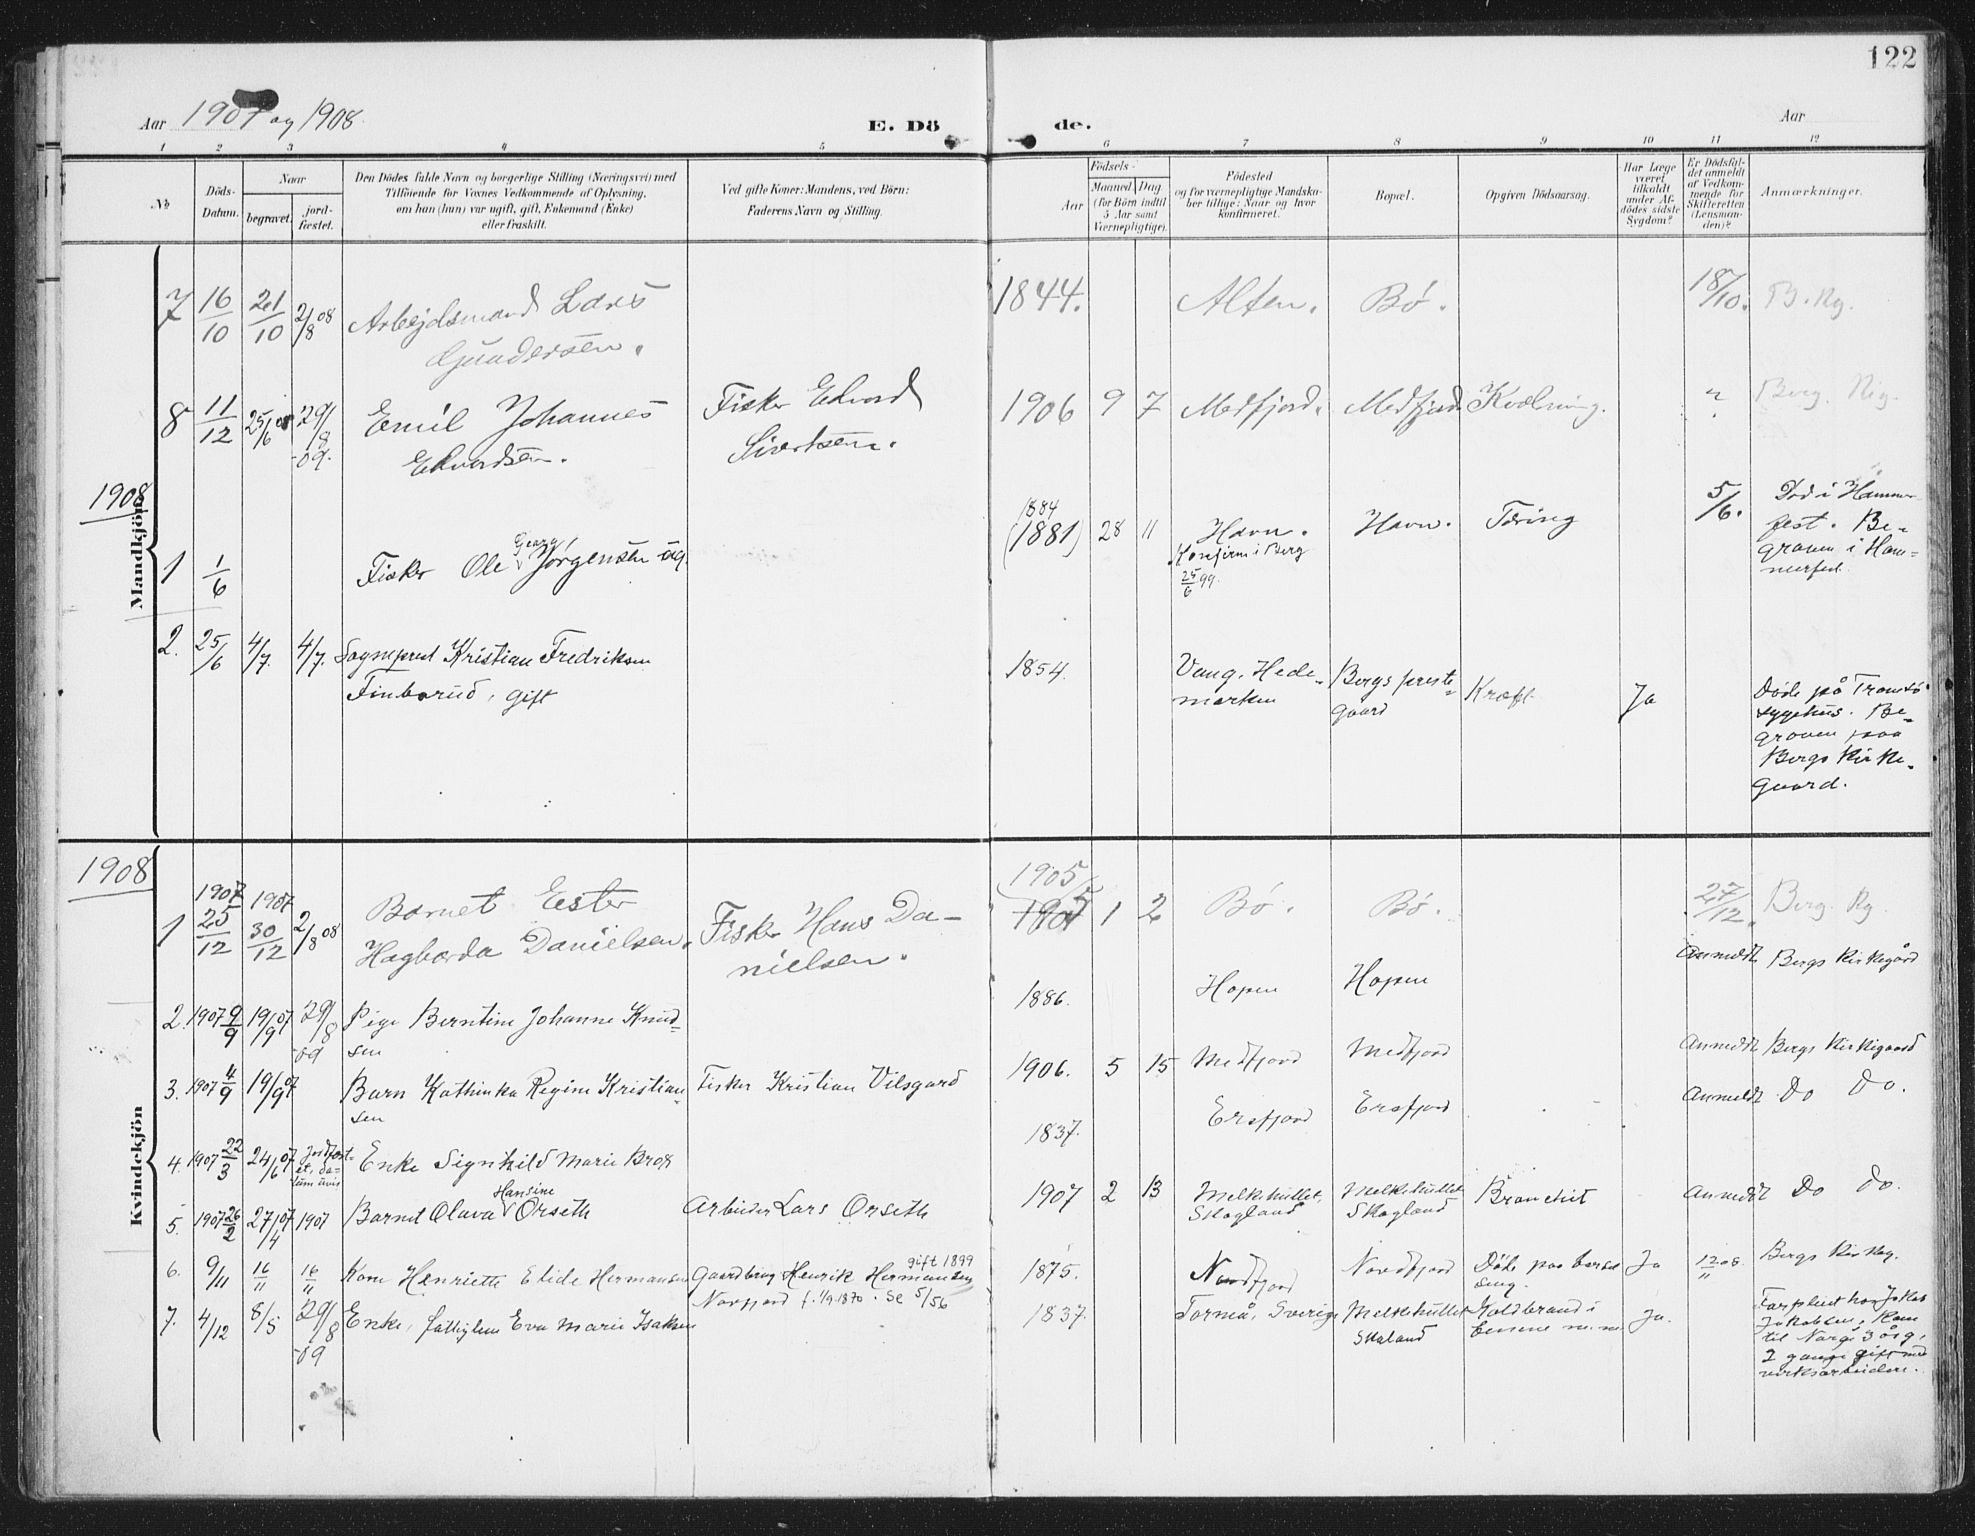 122
Aar 1907 og 1908
E. Dö
de.
Aar
1 2 3 4 5 6 7 8 9 10 11 12
No
Döds-
Datum.
Naar
begravet.
jord-
fæstet.
Den Dödes fulde Navn og borgerlige Stilling (Næringsvei) med
Tilföiende for Voxnes Vedkommende af Oplysning,
om han (hun) var ugift, gift, Enkemand (Enke)
eller fraskilt.
Ved gifte Koner: Mandens, ved Börn:
Faderens Navn og Stilling.
Födsels-
Aar
Maaned Dag
(for Börn indtil
5 Aar samt
Værnepligtige).
Födested
og for værnepligtige Mandska-
ber tillige: Naar og hvor
konfirmeret.
Bopæl.
Opgiven Dödsaarsag.
Har Læge
været
tilkaldt
under Af-
dödes sidste
Sygdom?
Er Dödsfal-
det anmeldt
af Vedkom-
mende for
Skifteretten
(Lensman-
den)?
Anmærkninger.
Mandkjön
7 16/10 21/10 2/8 08 Arbejdsmand Lars
Gundersen.
1844. Alten. Bö. 18/10. B. Kg.
8 11/12 25/6 08 29/8 -09. Emil Johannes
Edvardsen.
Fisker Edvard
Sivertsen.
1906 9 7 Medfjord. Medfjord Kvælning. Berg. Kig.
1908
1 1/6 Fisker Ole Georg Jørgensen ug.
1884
(1881) 28 11 Havn.
Konfirm i Berg
25/6 99.
Havn. Tæring 5/6. Död i Hammer-
fest. Be-
graven i Ham-
merfest.
2. 25/6 4/7. 4/7. Sogneprest Kristian Fredriksen
Finborud, gift
1854. Vang, Hede-
marken
Bergs preste-
gaard
Kræft Ja
Döde på Tromsö
sygehus. Be-
graven paa
Bergs Kirke-
gaard.
Kvindekjön
1908
1 1907 25/12 1907 30/12 2/8 08 Barnet Ester
Hagborda Danielsen.
Fisker Hans Da-
nielsen.
1905 1 2 Bö. Bö. 27/12. Berg. Kg.
2. 1907 9/9 19/9 07 29/8 -09 Pige Berntine Johanne Knud-
sen
1886. Hopen Hopen Anmeldt Bergs Kirkegård
3. 1907 4/9 19/9 07 Barn Kathinka Regine Kristian-
sen
Fisker Kristian Vilsgard
1906. 5 15 Medfjord Medfjord Anmeldt Bergs Kirkegaard
4. 1907 22/3 24/6 07 Jordfæst-
et, da-
tum uvis
Enke Signhild Marie Brox
1837. Ersfjord Ersfjord Anmeldt Do Do.
5. 1907 26/2 27/4 07 1907 Barnet Olava Hansine Orseth
Arbeider Lars Orseth
1907 2 13 Melkehullet,
Skogland
Melkehullet
Skogland
Bronchit Anmeldt Do Do.
6. 9/11 16/11 16/11 Kone Henriette Elide Hermansen
Gaardbrug Henrik Hermansen gift 1899
Nordfjord f. 1/9 1870. Se 5/56
1875. Nordfjord Nordfjord Döde paa barsel
seng. Ja 12/11 08. Bergs Kirkeg.
7. 4/12 8/5 29/8 -09 Enke, fattiglem Eva Marie Isaksen
1837. Torneå, Sverige Melkehullet
Skaland
Koldbrand i
benene m.m. Ja.
Forpleiet hos Jakob
Jakobsen, Kom
til Norge 3 årg.
2 gange gift med
verksarbeidere.